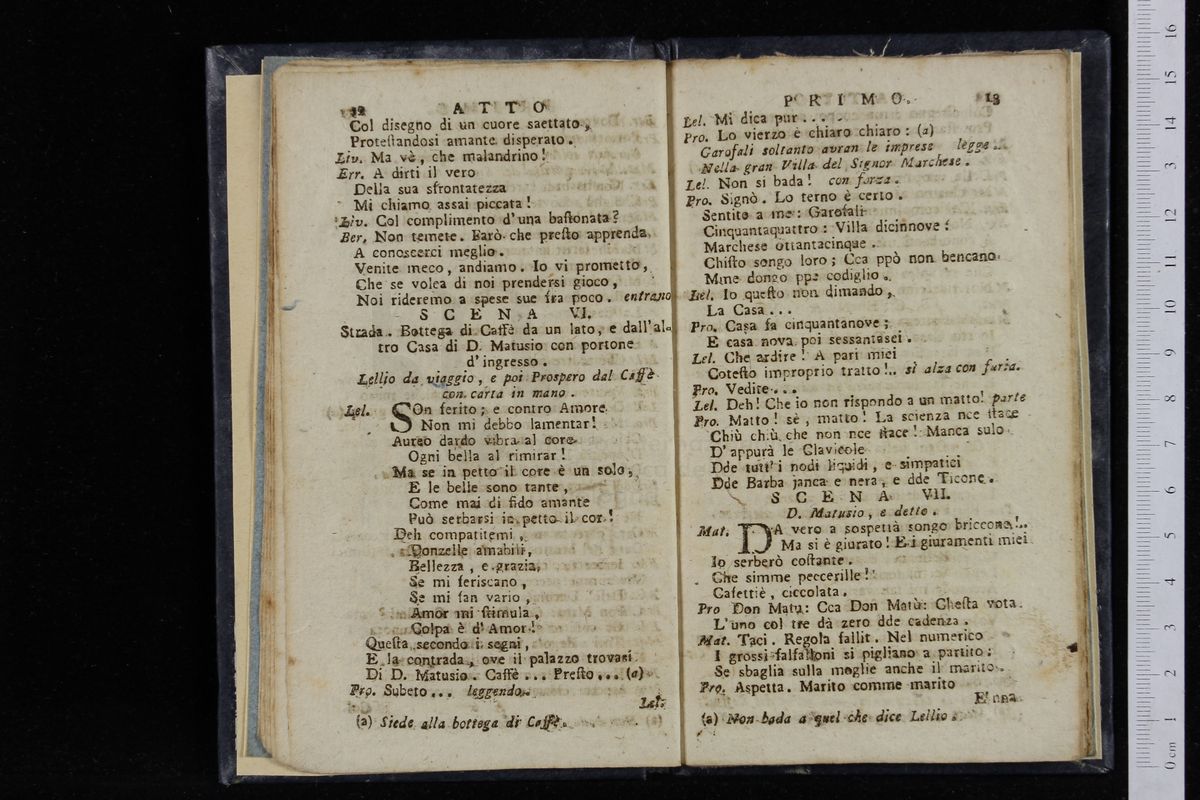 12 ATTO
Col disegno di un cuore saettato,
Protestandosi amante disperato.
Liv. Ma vè, che malandrino!
Err. A dirti il vero
Della sua sfrontatezza
Mi chiamo assai piccata!
Liv. Col complimento d'una bastonata?
Ber. Non temete. Farò che presto apprenda
A conoscerci meglio.
Venite meco, andiamo. Io vi prometto,
Che se volea di noi prendersi gioco,
Noi rideremo a spese sue fra poco. entrano
SCENA VI.
Strada. Bottega di Caffè da un lato, e dall'al-
tro Casa di D. Matusio con portone
d'ingresso.
Lellio da viaggio, e poi Prospero dal Caffè
con carta in mano.
Lel. SOn ferito; e contro Amore
Non mi debbo lamentar!
Aureo dardo vibra al core
Ogni bella al rimirar!
Ma se in petto il core è un solo,
E le belle sono tante,
Come mai di fido amante
Può serbarsi in petto il cor!
Deh compatitemi,
Donzelle amabili,
Bellezza, e grazia,
Se mi feriscano,
Se mi fan vario,
Amor mi stimula,
Colpa è d'Amor!
Questa secondo i segni,
E la contrada, ove il palazzo trovasi
Di D. Matusio. Caffè... Presto... (a)
Pro. Subeto... leggendo.
Lel.
(a) Siede alla bottega di Caffè.
PRIMO. 13
Lel. Mi dica pur....
Pro. Lo vierzo è chiaro chiaro: (a)
Garofali soltanto avran le imprese legge..
Nella gran Villa del Signor Marchese.
Lel. Non si bada! con forza.
Pro. Signò. Lo terno è certo.
Sentite a me: Garofali
Cinquantaquattro: Villa dicinnove:
Marchese ottantacinque.
Chisto songo loro; Cca ppò non bencano
Mme dongo ppe codiglio.
Lel. Io questo non dimando,
La Casa...
Pro. Casa fa cinquantanove;
E casa nova poi sessantasei.
Lel. Che ardire! A pari miei
Cotesto improprio tratto!.. si alza con furia.
Pro. Vedite...
Lel. Deh! Che io non rispondo a un matto! parte
Pro. Matto! sè, matto! La scienza nce stace
Chiù chiù che non nce stace! Manca sulo
D'appurà le Clavicole
Dde tutt'i nodi liquidi, e simpatici
Dde Barba janca e nera, e dde Ticone.
SCENA VII.
D. Matusio, e detto.
Mat. DA vero a sospettà songo briccone!..
Ma si è giurato! E i giuramenti miei
Io serberò costante.
Che simme peccerille!
Cafettiè, ciccolata.
Pro Don Matu: Cca Don Matù: Chesta vota
L'uno col tre dà zero dde cadenza.
Mat. Taci. Regola fallit. Nel numerico
I grossi falfalloni si pigliano a partito:
Se sbaglia sulla moglie anche il marito.
Pro. Aspetta. Marito comme marito
E' nna
(a) Non bada a quel che dice Lellio.